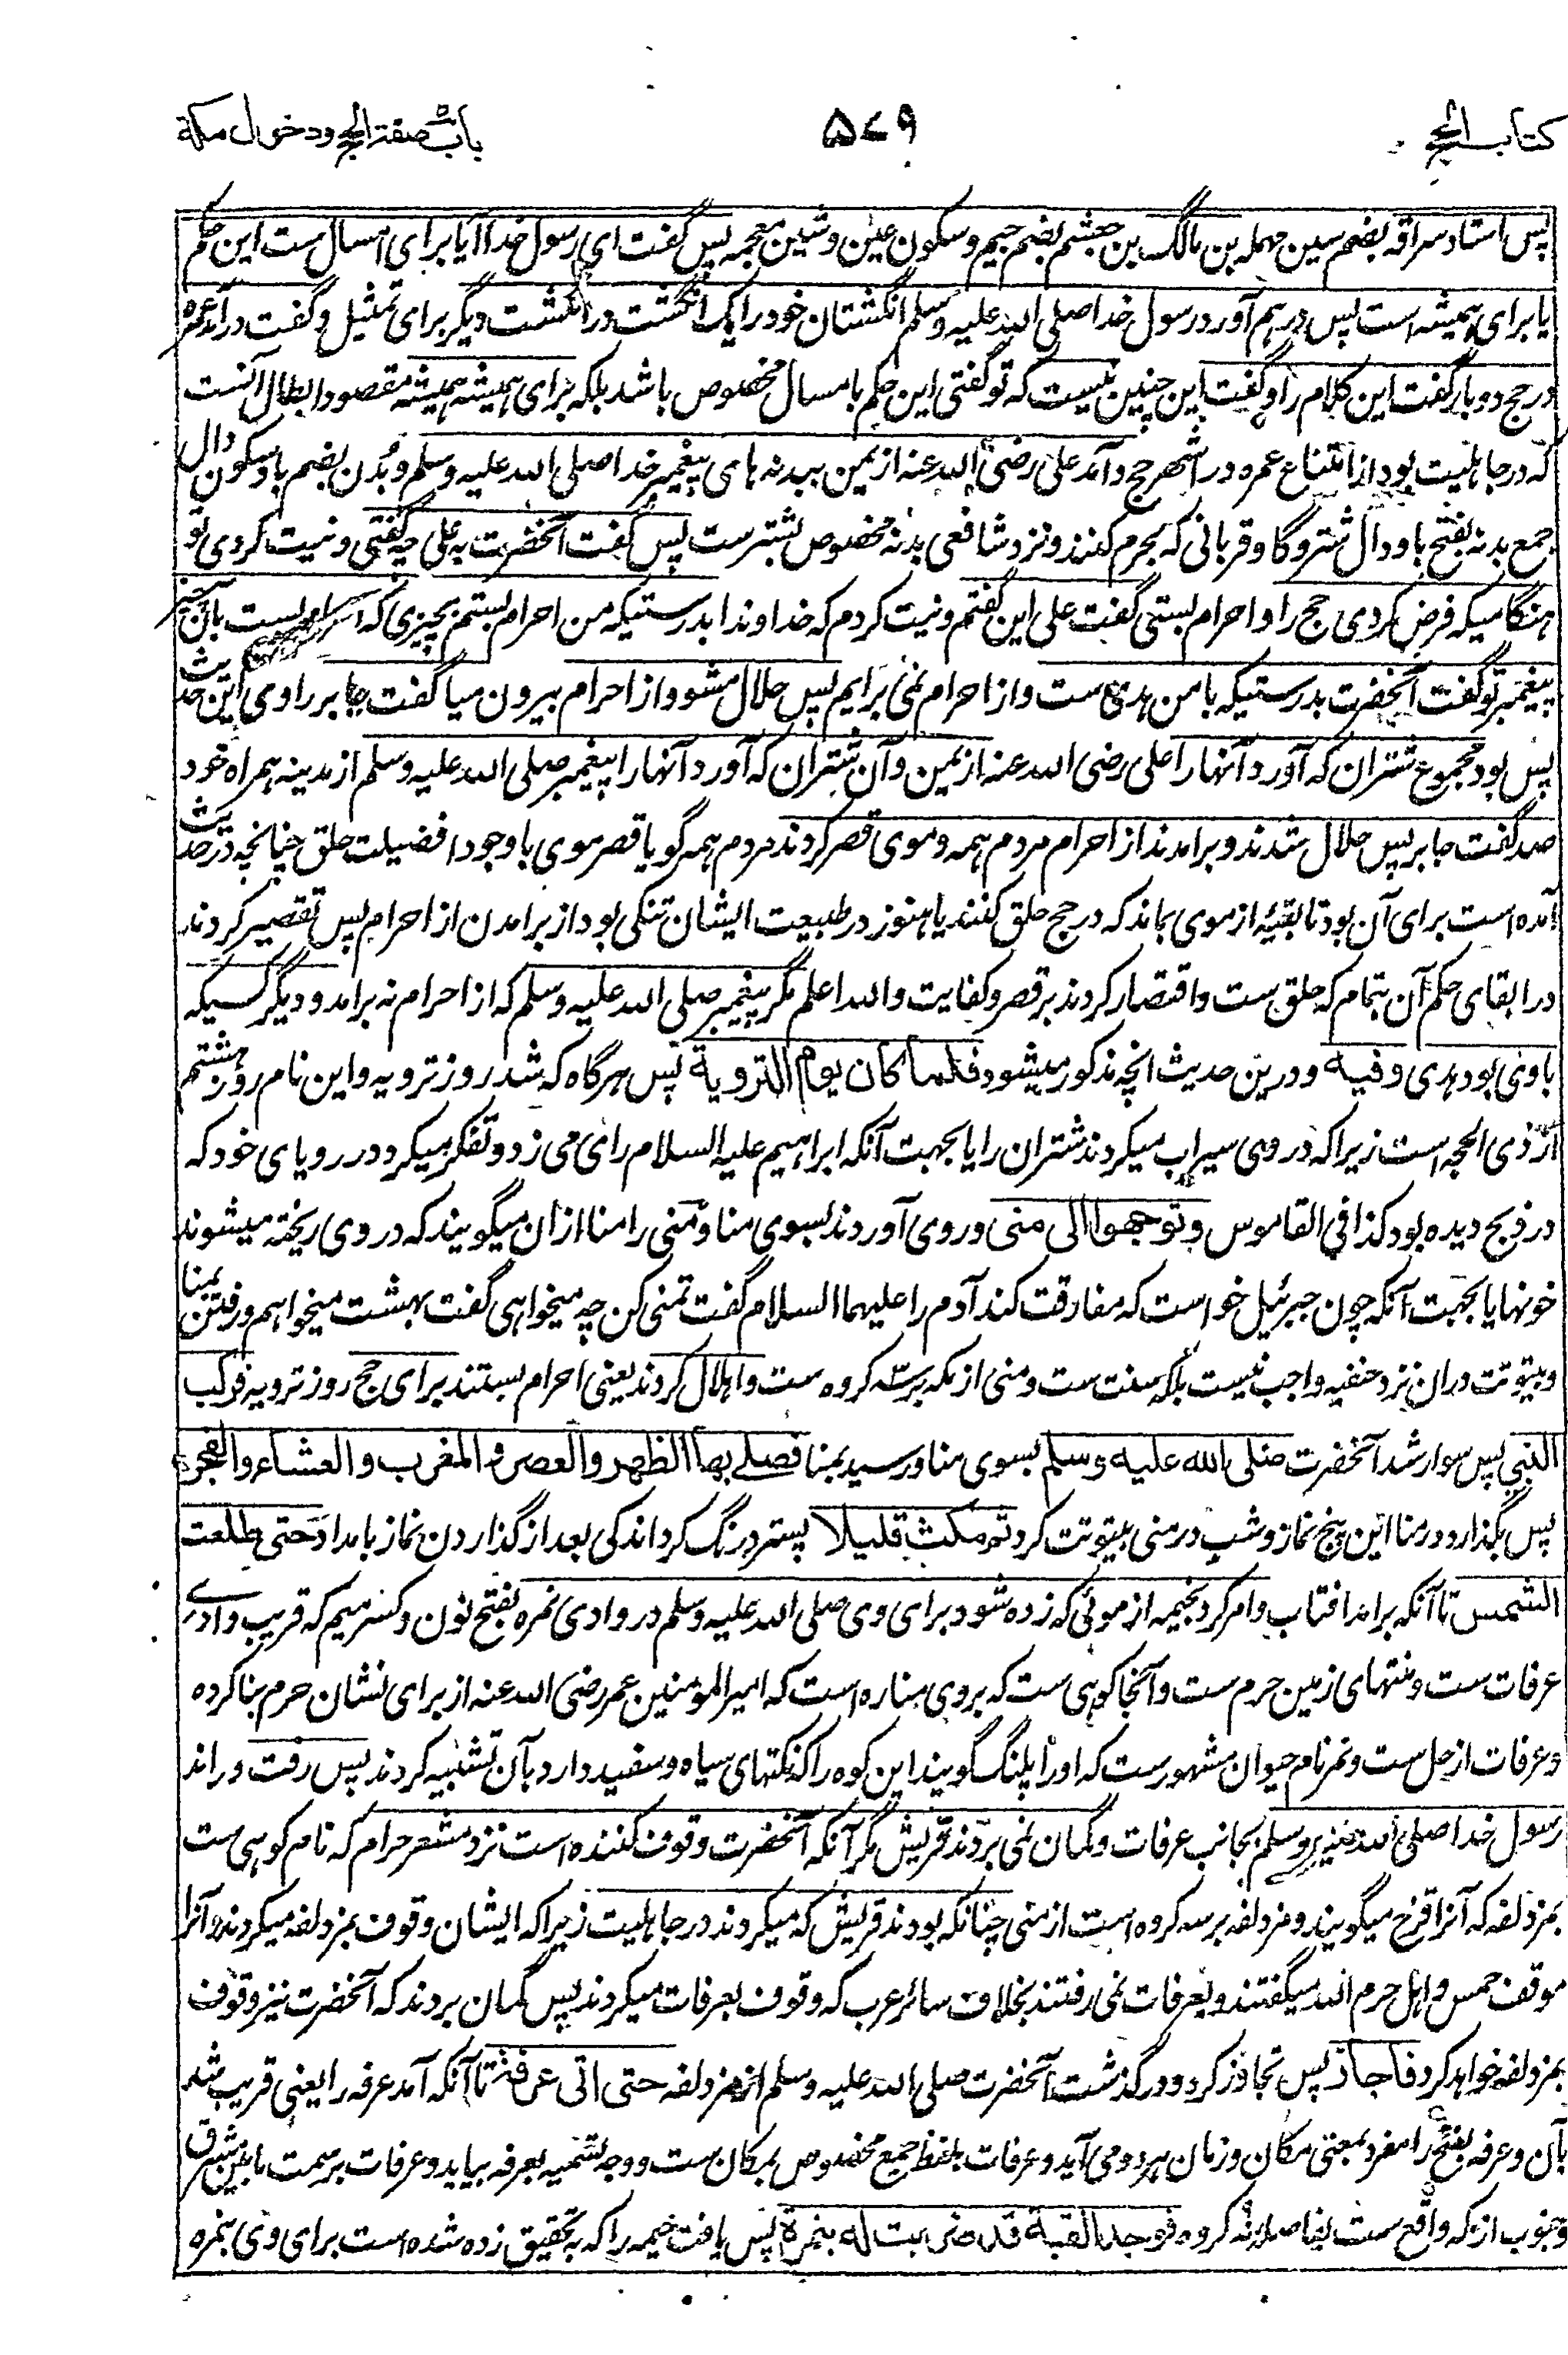 کتاب الحج
۵۷۹
باب صفة الحج ودخول مکة
پس استاد سراقه بضم سین مهمله بن مالک بن جعشم بضم جیم و سکون عین و شین معجمه پس گفت ای رسول خدا آیا برای امسال ست این حکم
یا برای همیشه است پس درهم آورد رسول خدا صلی الله علیه وسلم انگشتان خود را یک انگشت در انگشت دیگر برای تمثیل و گفت درآمد عمره
در حج دو بار گفت این کلام را و گفت این چنین نیست که تو گفتی این حکم بامسال مخصوص باشد بلکه برای همیشه همیشه مقصود ابطال آنست
که در جاهلیت بود از امتناع عمره در اشهر حج و آمد علی رضی الله عنه از یمن ببدنه های پیغمبر خدا صلی الله علیه وسلم و بُدن بضم با و سکون دال
جمع بدنه بفتح با و دال شتر و گاو قربانی که بحرم کنند و نزد شافعی بدنه مخصوص بشترست پس گفت آنحضرت به علی چه گفتی و نیت کردی تو
هنگامیکه فرض کردی حج را و احرام بستی گفت علی این گفتم و نیت کردم که خداوندا بدرستیکه من احرام بستم بچیزی که احرام بست بآن چیز
پیغمبر تو گفت آنحضرت بدرستیکه با من هدی ست و از احرام نمی برایم پس حلال مشو و از احرام بیرون میا گفت جابر راوی این حدیث
پس بود مجموع شتران که آورد آنها را علی رضی الله عنه از یمن و آن شتران که آورد آنها را پیغمبر صلی الله علیه وسلم از مدینه همراه خود
صد گفت جابر پس حلال شدند و برامدند از احرام مردم همه و موی قصر کردند مردم همه گویا قصر موی با وجود افضیلت حلق چنانچه در حدیث
آمده است برای آن بود تا بقیهٔ از موی بماند که در حج حلق کنند یا هنوز در طبیعت ایشان تنکی بود از برامدن از احرام پس تقصیر کردند
در ابقای حکم آن بتمام که حلق ست و اقتصار کردند بر قصر و کفایت والله اعلم مگر پیغمبر صلی الله علیه وسلم که از احرام نه برامد و دیگر کسیکه
با وی بود هدی وفیه و درین حدیث انچه مذکور میشود فلما کان یوم الترویة پس هرگاه که شد روز ترویه و این نام روز هشتم
از ذی الحجه است زیرا که در وی سیراب میکردند شتران را یا بجهت آنکه ابراهیم علیه السلام رای می زد و تفکر میکرد در رویای خود که
در ذبح دیده بود کذا فی القاموس وتوجهوا الی منی و روی آوردند بسوی منا و منی را منا ازان میگویند که در وی ریخته میشوند
خونها یا بجهت آنکه چون جبرئیل خواست که مفارقت کند آدم را علیهما السلام گفت تمنی کن چه میخواهی گفت بهشت میخواهم و رفتن بمنا
و بیتوتت دران نزد حنفیه واجب نیست بلکه سنت ست و منی از مکه بر سه کروه ست و اهلال کردند یعنی احرام بستند برای حج روز ترویه فرکب
النبی پس سوار شد آنحضرت صلی الله علیه وسلم بسوی منا و رسید بمنا فصلی بها الظهر والعصر والمغرب والعشاء والفجر
پس بگذارد در منا این پنج نماز و شب در منی بیتوتت کرد ثم مکث قلیلا پستر درنگ کرد اندکی بعد از گذاردن نماز بامداد حتی طلعت
الشمس تا آنکه برامد افتاب و امر کرد بخیمه از موئی که زده شود برای وی صلی الله علیه وسلم در وادی نمره بفتح نون و کسر میم که قریب وادی
عرفات ست و منتهای زمین حرم ست و آنجا کوهی ست که بروی مناره است که امیر المؤمنین عمر رضی الله عنه از برای نشان حرم بنا کرده
و عرفات از حل ست و نمر نام حیوان مشهورست که او را پلنگ گویند این کوه را که نکتهای سیاه و سفید دارد بآن تشبیه کردند پس رفت و راند
رسول خدا صلی الله علیه وسلم بجانب عرفات و گمان نمی بردند قریش مگر آنکه آنحضرت وقوف کننده است نزد مشعر حرام که نام کوهی ست
بمزدلفه که آنرا قزح میگویند و مزدلفه بر سه کروه است از منی چنانکه بودند قریش که میکردند در جاهلیت زیرا که ایشان وقوف بمزدلفه میکردند و آنرا
موقف حمس و اهل حرم الله میگفتند و بعرفات نمی رفتند بخلاف سائر عرب که وقوف بعرفات میکردند پس گمان بردند که آنحضرت نیز وقوف
بمزدلفه خواهد کرد فاجاز پس تجاوز کرد و درگذشت آنحضرت صلی الله علیه وسلم از مزدلفه حتی اتی عرفة تا آنکه آمد عرفه را یعنی قریب شد
بآن و عرفه بفتح را مفرد بمعنی مکان و زمان هر دو می آید و عرفات بلفظ جمع مخصوص بمکان ست و وجه تسمیه بعرفه بیاید و عرفات برسمت مابین مشرق
و جنوب از مکه واقع ست بفاصله نه کروه فوجد القبة قد ضربت له بنمرة پس یافت خیمه را که بتحقیق زده شده است برای وی بنمره